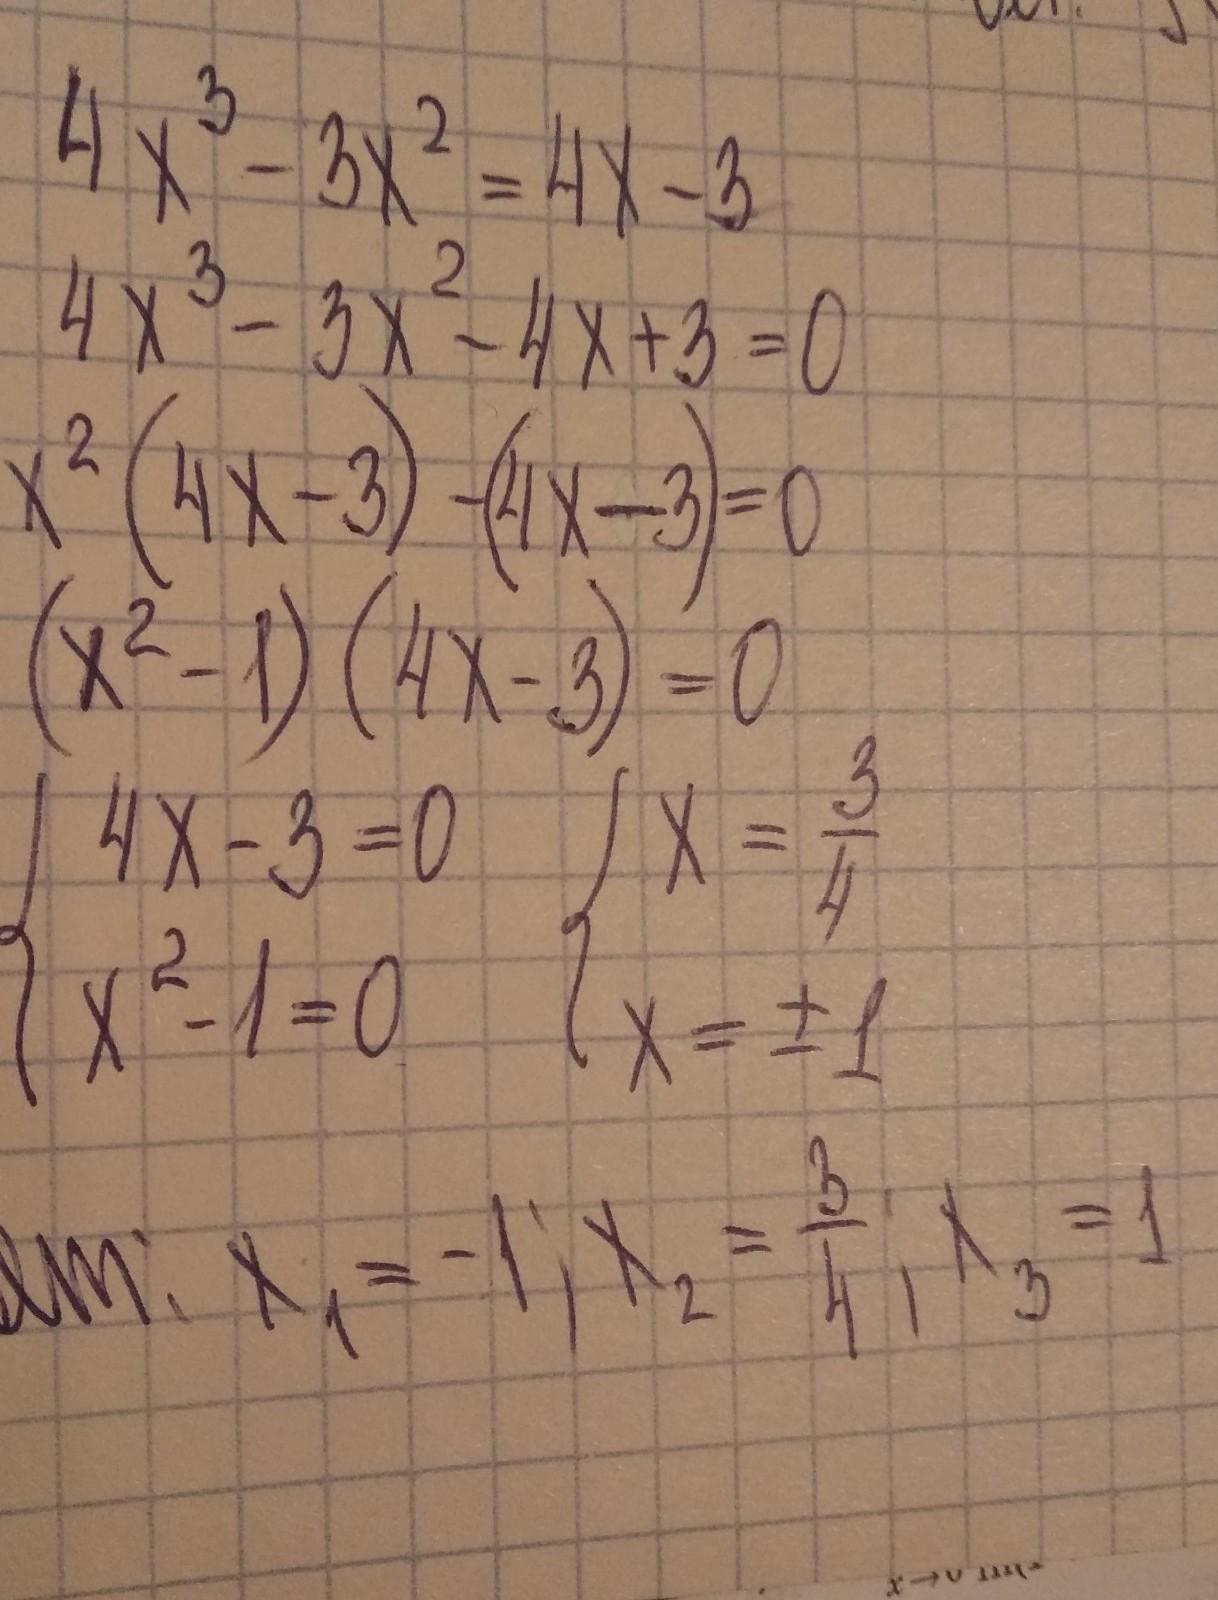 4x³ - 3x² = 4x - 3
4x³ - 3x² - 4x + 3 = 0
x² (4x - 3) - (4x - 3) = 0
(x² - 1) (4x - 3) = 0
{ 4x - 3 = 0 { x = 3/4
x² - 1 = 0 x = ± 1
x₁ = -1; x₂ = 3/4; x₃ = 1